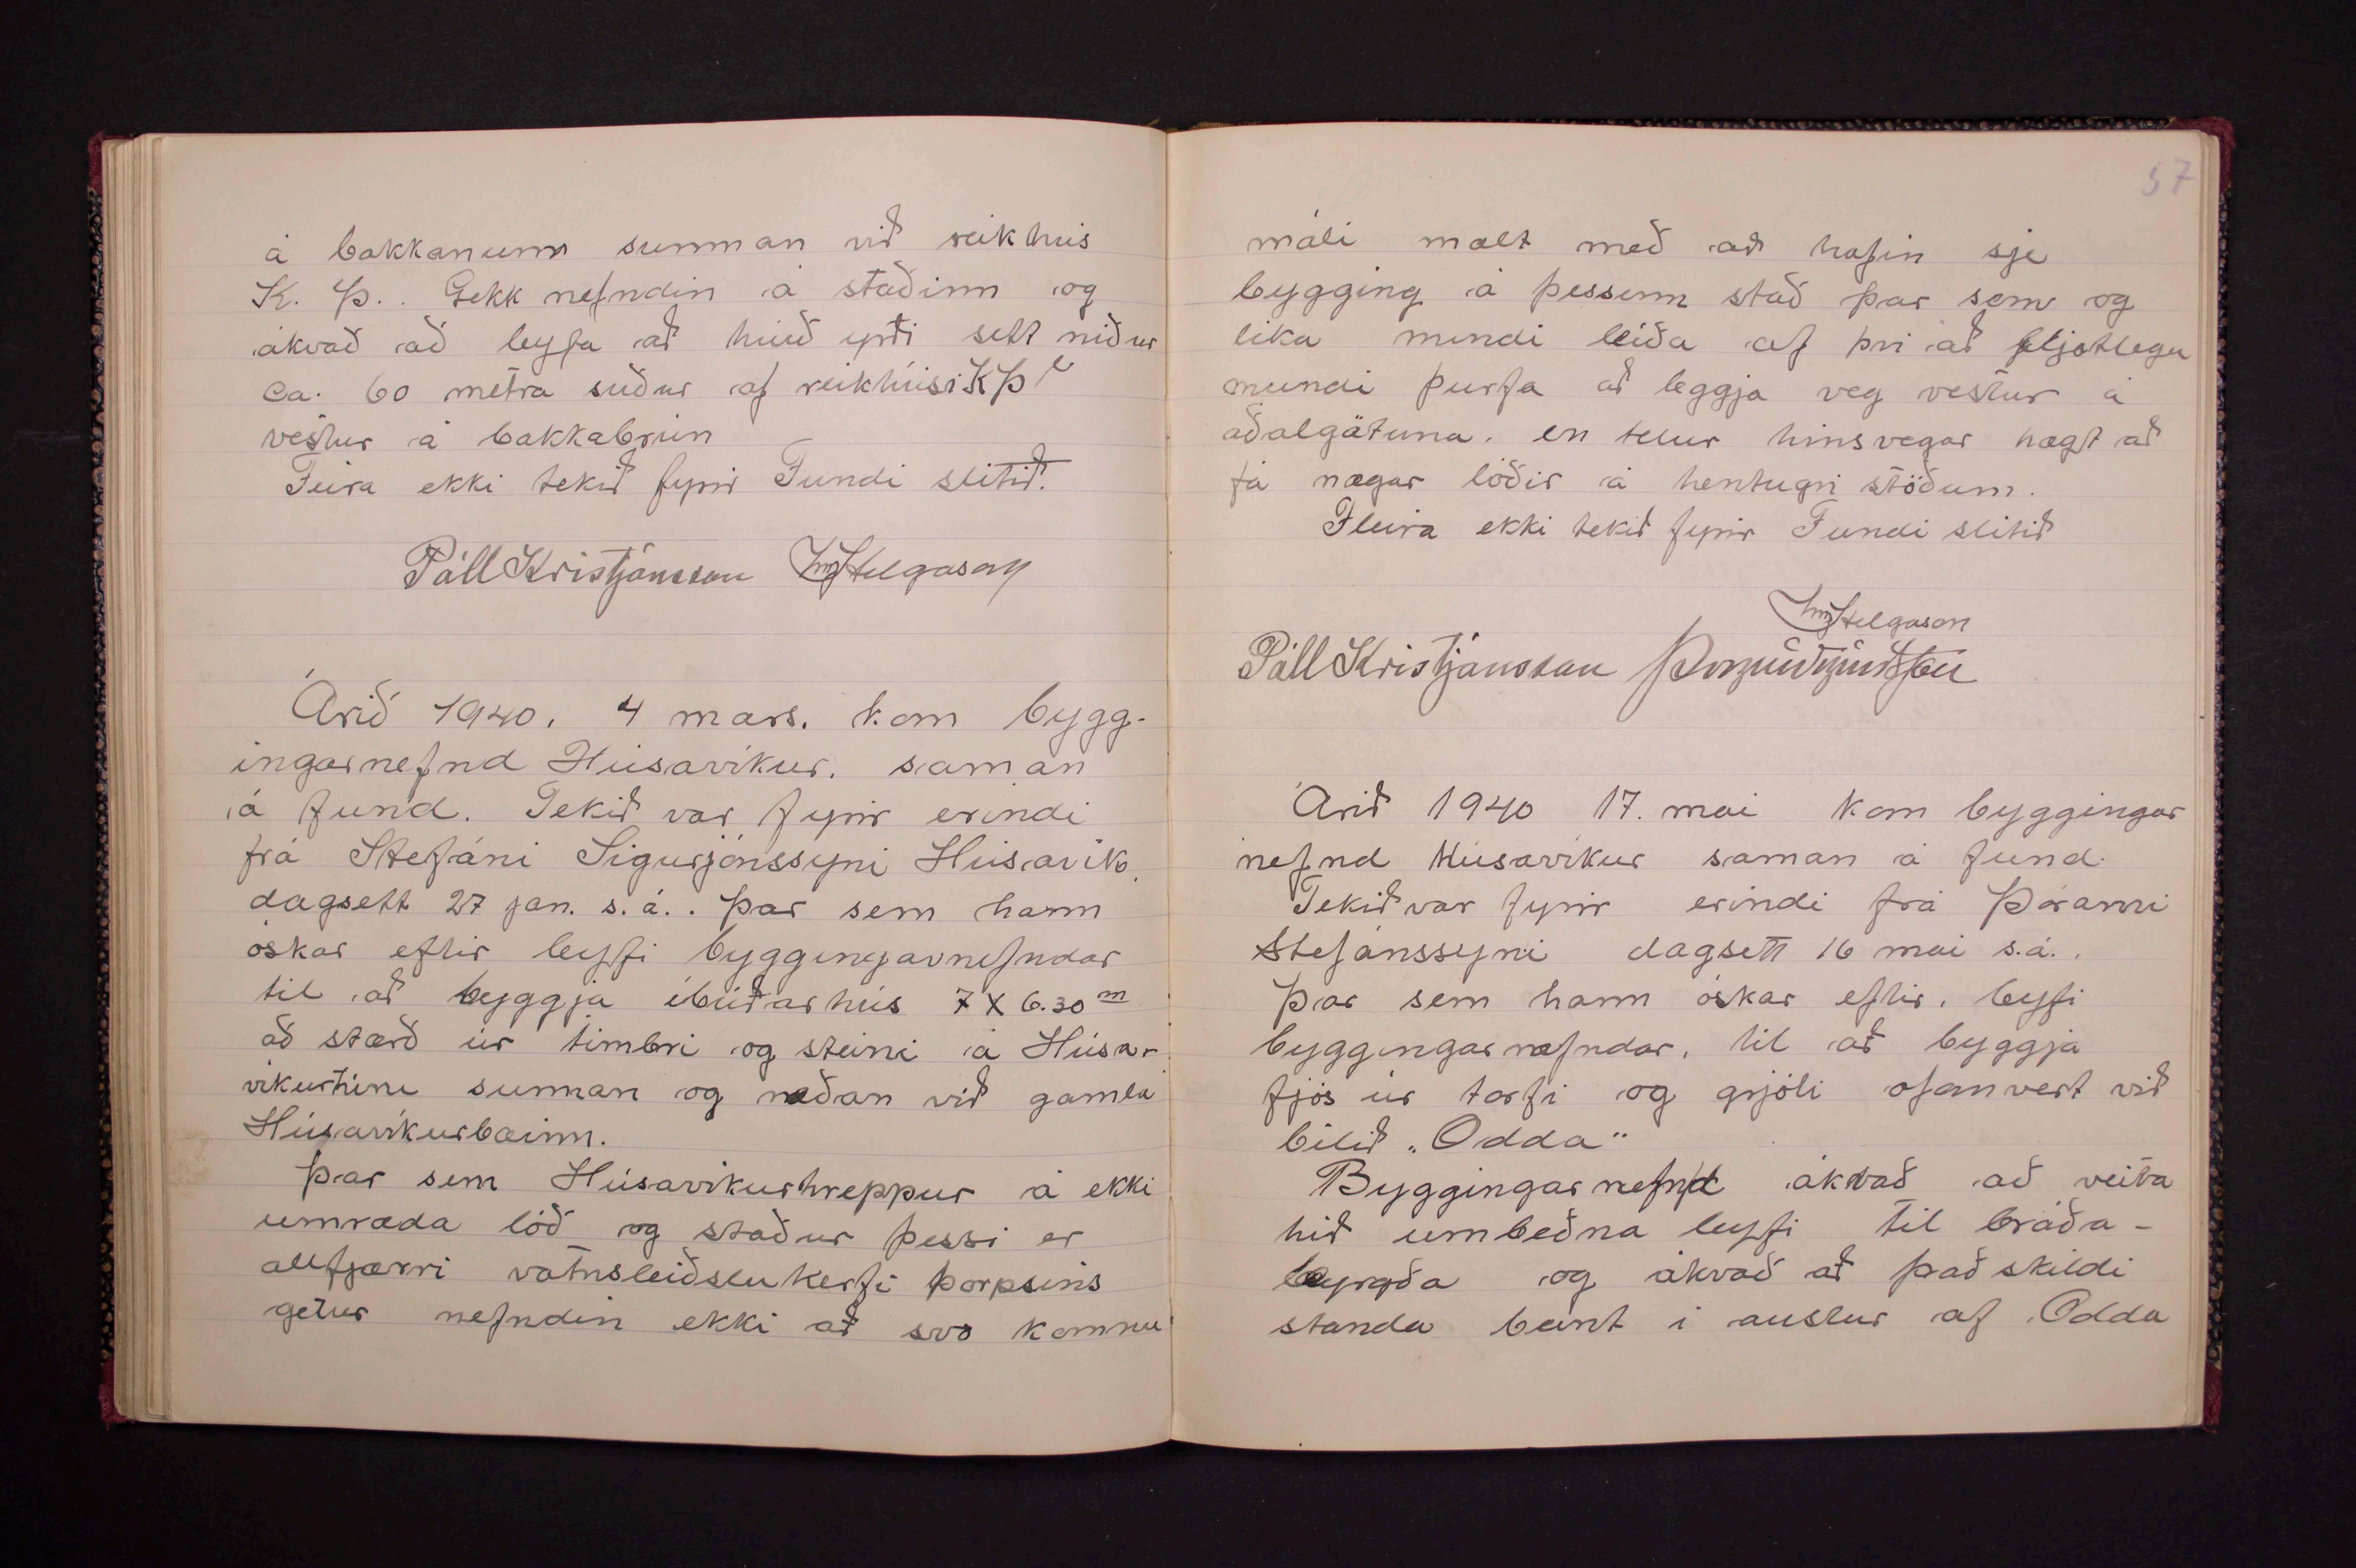 á bakkanum sunnan við reikhús
K. Þ.. Gekk nefndin á staðinn og
ákvað að leyfa að húsið yrði sett niður
ca. 60 metra suður af reikhúsi KÞ
vestur á bakkabrún
Feira ekki tekið fyrir Fundi slitið.
Páll Kristjánsson HmHelgason
Árið 1940. 4 mars. kom bygg-
ingarnefnd Húsavíkur. saman
á fund. Tekið var fyrir erindi
frá Stefáni Sigurjónssyni Húsavík.
dagsett 27 jan. s.á.. þar sem hann
óskar eftir leyfi byggingarnefndar
til að byggja íbúðarhús 7 x 6.30 m
að stærð úr timbri og steini á Húsa-
víkurtúni sunnan og neðan við gamla
Húsavíkurbæinn.
Þar sem Húsavíkurhreppur á ekki
umráda lóð og staður þessi er
allfjærri vatnsleiðslukerfi þorpsins
getur nefndin ekki að svo komnu
57
máli mælt með að hafin sje
bygging á þessum stað þar sem og
líka mundi leiða af því að fljótlega
mundi þurfa að leggja veg vestur á
aðalgötuna. en telur hinsvegar hægt að
fá nægar lóðir á hentugri stöðum.
Fleira ekki tekið fyrir Fundi slitið
HmHelgason
Páll Kristjánsson
Árið 1940 17. mai kom byggingar
nefnd Húsavíkur saman á fund.
Tekið var fyrir erindi frá Þórarni
Stefánssyni dagsett 16 mai s.á..
þar sem hann óskar eftir. leyfi
byggingarnefndar, til að byggja
fjós úr torfi og grjóti ofanvert við
bílið „Odda"
Byggingarnefnd ákvað að veita
hið umbeðna leyfi til bráða-
byrgða og ákvað að það skildi
standa beint í austur af Odda